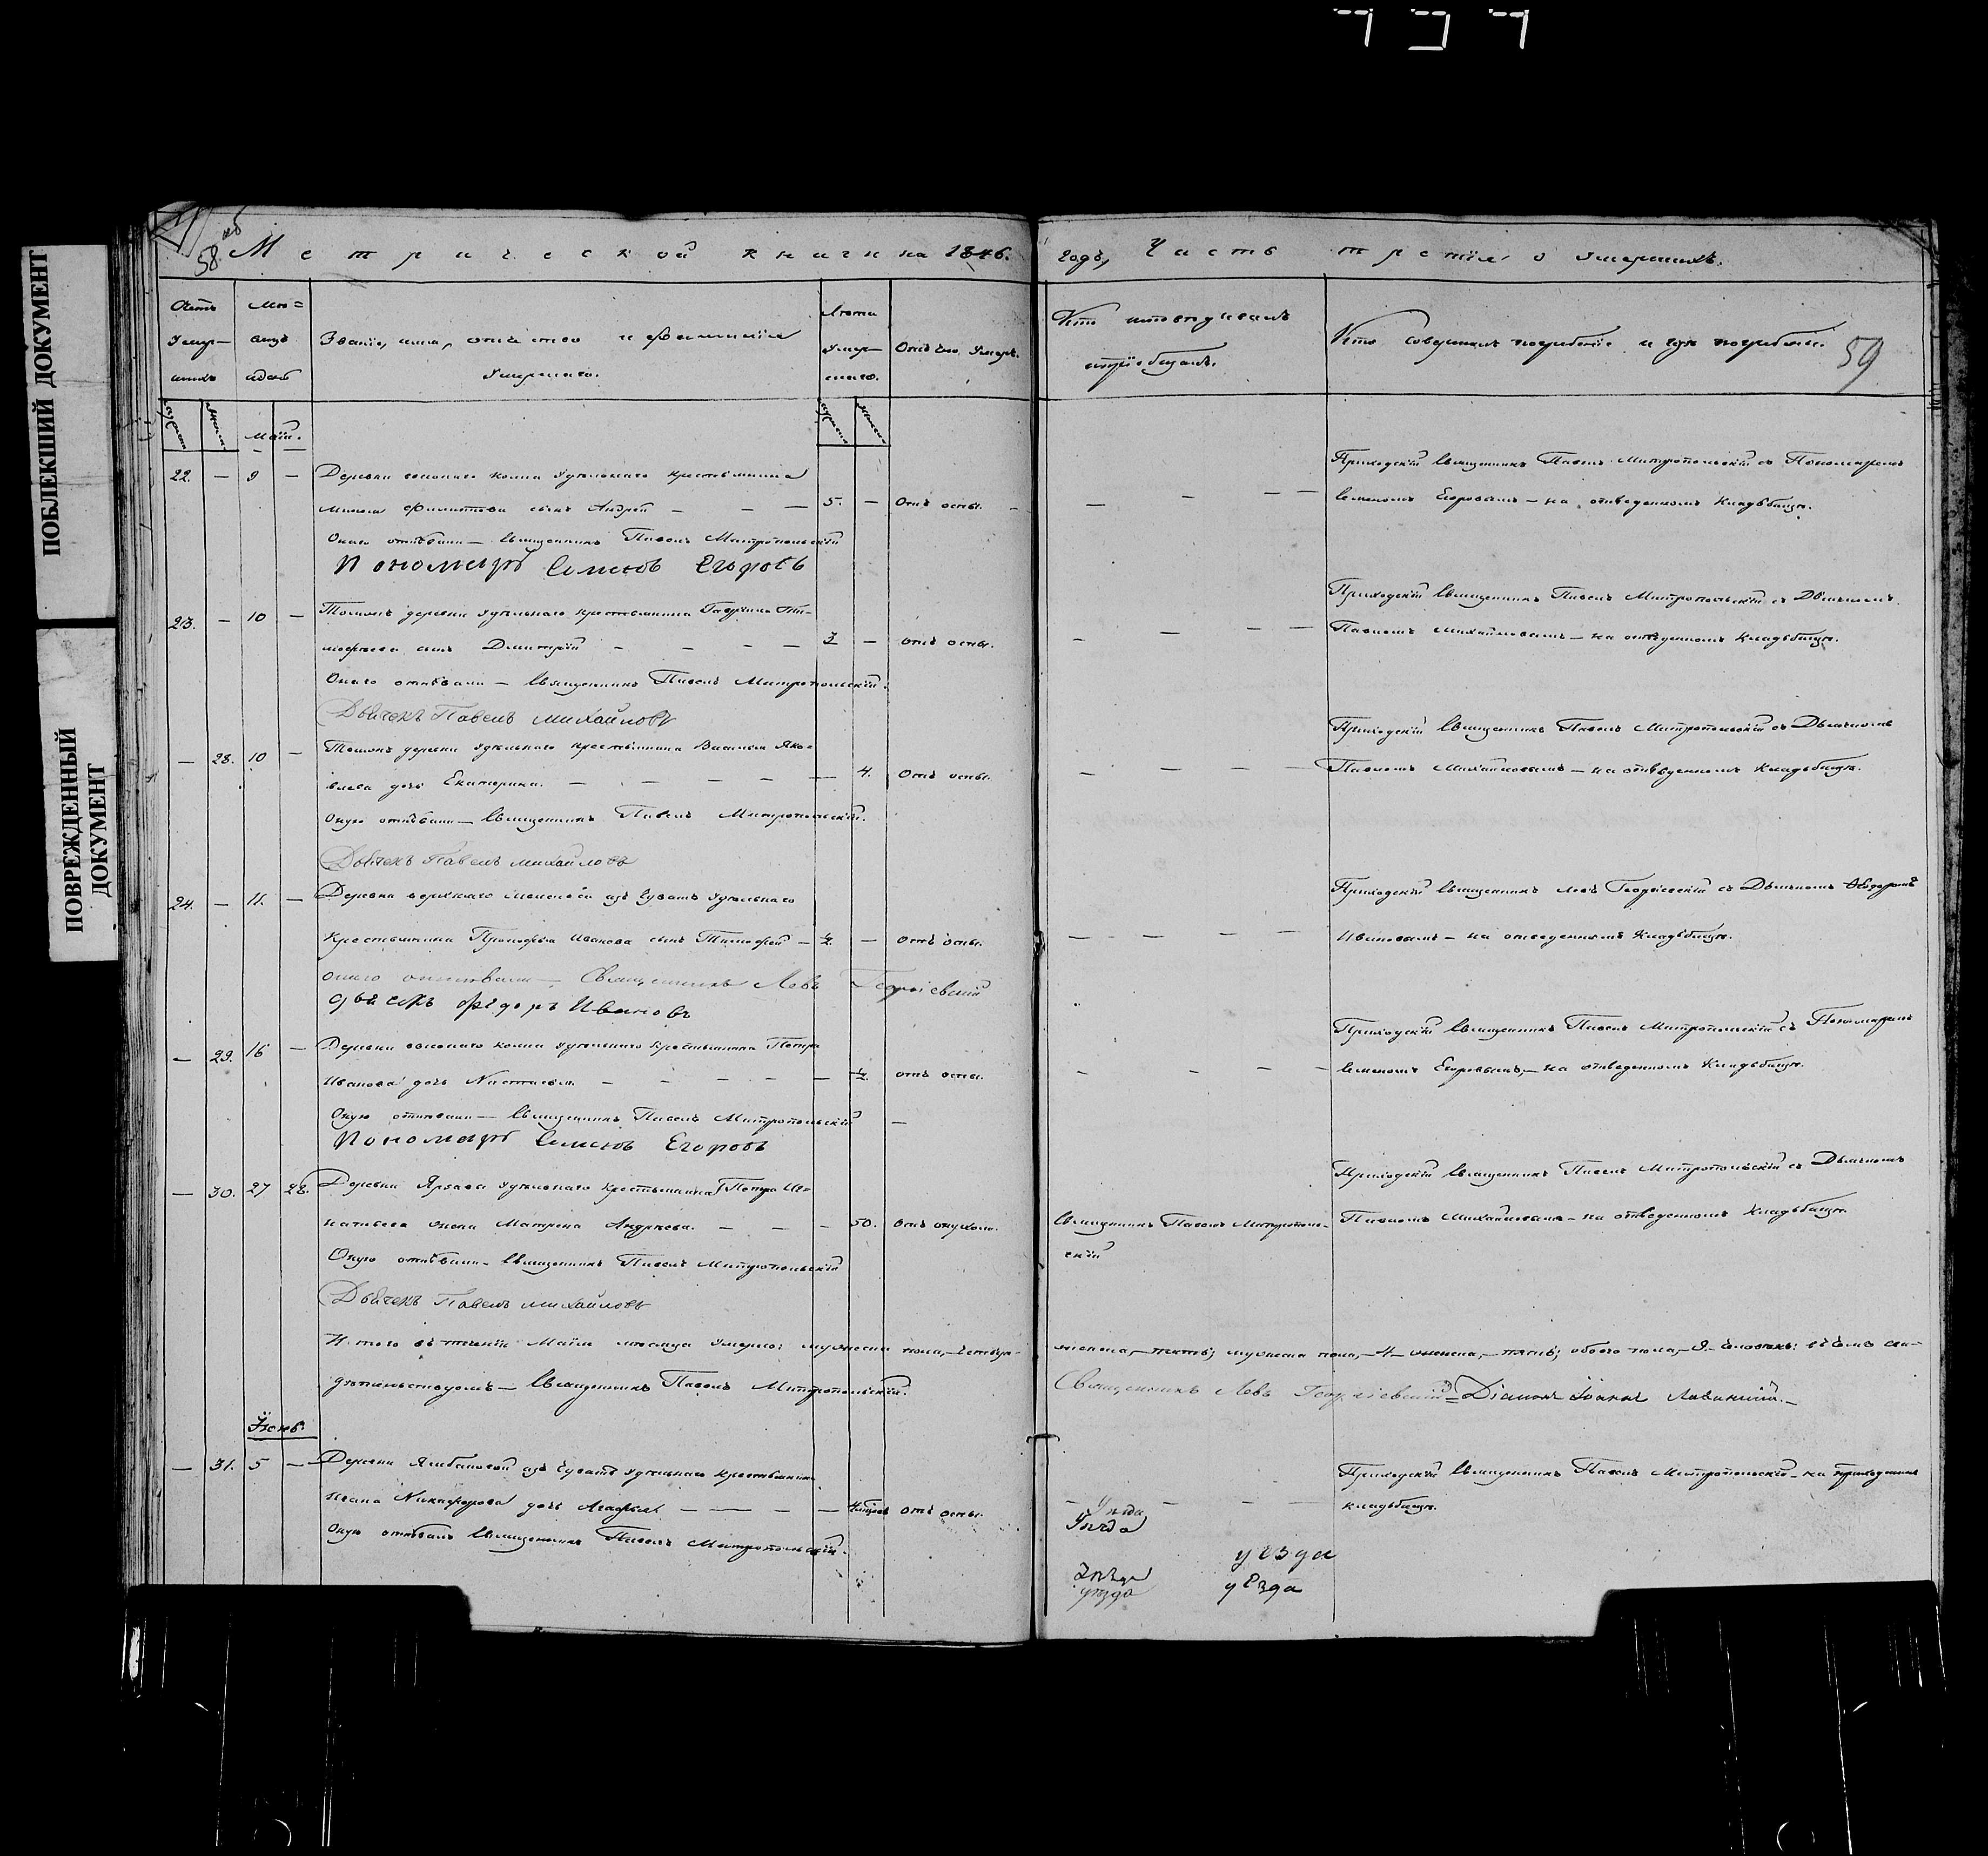 ПОБЛЕКШИЙ ДОКУМЕНТ
ПОВРЕЖДЕННЫЙ
ДОКУМЕНТ
58 об
Метрической книги на 1846.
годъ, Часть третія о умершихъ.
59
Счетъ умер-шихъ
Мѣ-сяцъ и день
Званіе, имя, отчество и фамилія
умершаго.
Лѣта умер-шаго.
Отъ чего умеръ.
Кто исповѣдывалъ
и пріобщалъ.
Кто совершалъ погребеніе и гдѣ погребены.
Маія.
22. — 9 — Деревни удѣльнаго крестьянина
Филиппова сынъ Андрей — — — 5. — Отъ оспы.
Онаго отпѣвали — Священникъ Павелъ Митропольскій
Пономарь Семенъ Егоровъ
Приходскій Священникъ Павелъ Митропольскій съ Пономаремъ
Семеномъ Егоровымъ — на отведенномъ Кладбищѣ.
23. — 10 — Тояжъ деревни удѣльнаго крестьянина Гавріила Ти-
мофеева сынъ Димитрій — — — — 3 — отъ оспы.
Онаго отпѣвали — Священникъ Павелъ Митропольскій:
Дьячекъ Павелъ Михайловъ
Приходскій Священникъ Павелъ Митропольскій съ Дьячкомъ
Павломъ Михайловымъ — на отведенномъ Кладбищѣ.
— 28. 10 — Тояжъ деревни удѣльнаго крестьянина Василья Яко-
влева дочь Екатерина. — — — — — 4. Отъ оспы.
Оную отпѣвали — Священникъ Павелъ Митропольскій.
Дьячекъ Павелъ Михайловъ
Приходскій Священникъ Павелъ Митропольскій съ Дьячкомъ
Павломъ Михайловымъ — на отведенномъ Кладбищѣ.
24. — 11. — Деревни изъ Чувашъ удѣльнаго
Крестьянина Прокофья Иванова сынъ Тимофей — ½ — отъ оспы.
онаго отпѣвали — Священникъ Левъ Георгіевскій
дьячекъ Федоръ Ивановъ
Приходскій Священникъ Левъ Георгіевскій съ Дьячкомъ Ѳеодоромъ
Ивановымъ — на отведенномъ Кладбищѣ.
— 29. 16 — Деревни удѣльнаго крестьянина Петра
Иванова дочь Настасья — — — — — ½. отъ оспы.
Оную отпѣвали — Священникъ Павелъ Митропольскій —
Пономарь Семенъ Егоровъ
Приходскій Священникъ Павелъ Митропольскій съ Пономаремъ
Семеномъ Егоровымъ, — на отведенномъ Кладбищѣ.
— 30. 27 28. Деревни удѣльнаго крестьянина Петра Иг-
натьева жена Матрена Андреева. — — — 50. Отъ опухоли.
Оную отпѣвали — Священникъ Павелъ Митропольскій
Дьячекъ Павелъ Михайловъ
Священникъ Павелъ Митрополь-
скій
Приходскій Священникъ Павелъ Митропольскій съ Дьячкомъ
Павломъ Михайловымъ — на отведенномъ Кладбищѣ.
Итого въ теченіи Маія мѣсяца умерло: мужеска пола,
женска, — пять; мужеска пола, — 4 — женска, — пять; обоего пола, — 9. Человѣкъ: въ чемъ сви-
дѣтельствуемъ — Священникъ Павелъ Митропольскій.
Священникъ Левъ Георгіевскій = Діаконъ Іоаннъ —
Іюнь.
— 31. 5 — Деревни изъ Чувашъ удѣльнаго крестьянина
Ивана Никифорова дочь Агафья — — — — отъ оспы.
Оную отпѣвалъ Священникъ Павелъ Митропольскій.
Приходскій Священникъ Павелъ Митропольскій — на приходскомъ
кладбищѣ.
Уѣзда
Уѣзда
уезда
уѣзда
уезда